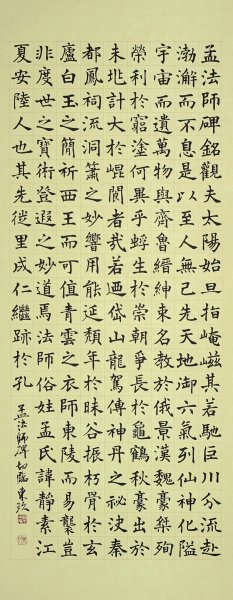 孟法師碑銘觀夫太陽始旦指崦嵫其若馳巨川分流赴
渤澥而不息是以至人無己先天地御六氣列仙神化隘
宇宙而遺萬物與齊魯縉紳束名教於俄景漢魏豪桀殉
榮利於窮塗何異乎蜉生於崇朝爭長於龜鶴秋豪出於
未兆計大於崐閬者哉若迺岱山龍駕傳神丹之秘決秦
都鳳祠流洞簫之妙響用能延頹年於昧谷振朽骨於玄
廬白玉之簡祈西王而可值青雲之衣師東陵而易襲豈
非度世之寶術登遐之妙道焉法師俗姓孟氏諱靜素江
夏安陸人也其先徙里成仁繼跡於孔
孟法師碑 臨 東